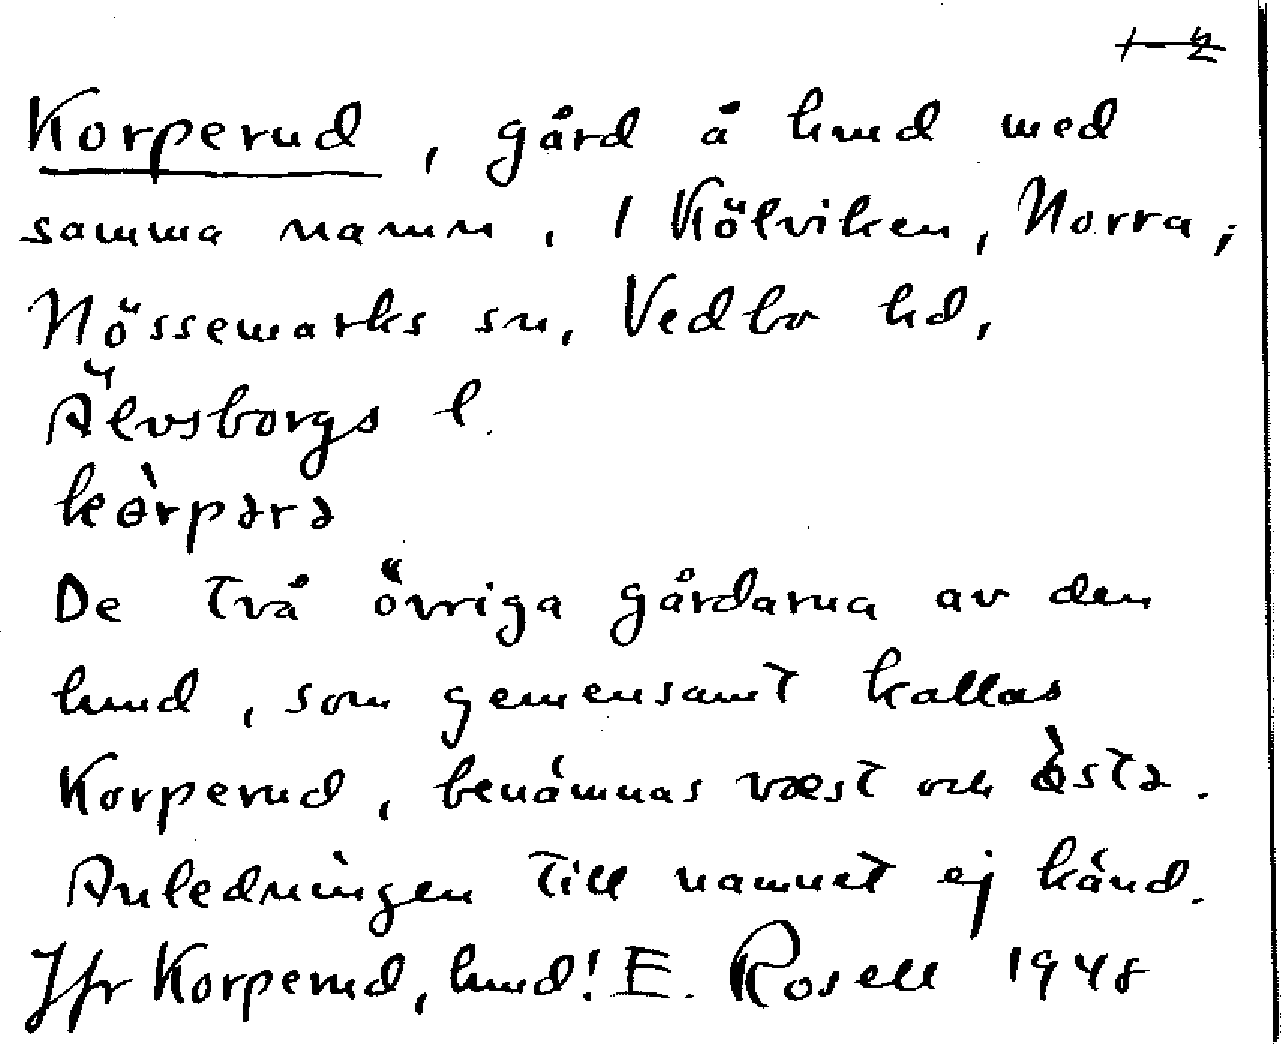 Korperud, gård å hmd med
samma namn, 1 Kölviken, Norra,
Nössemarks sn, Vedbo hd,
Älvsborgs l.
kòrpərə
De två övriga gårdarna av den
hmd, som gemensamt kallas
Korperud, benämnas væst och òstə.
Anledningen till namnet ej känd.
Jfr Korperud, hmd! E. Rosell 1948